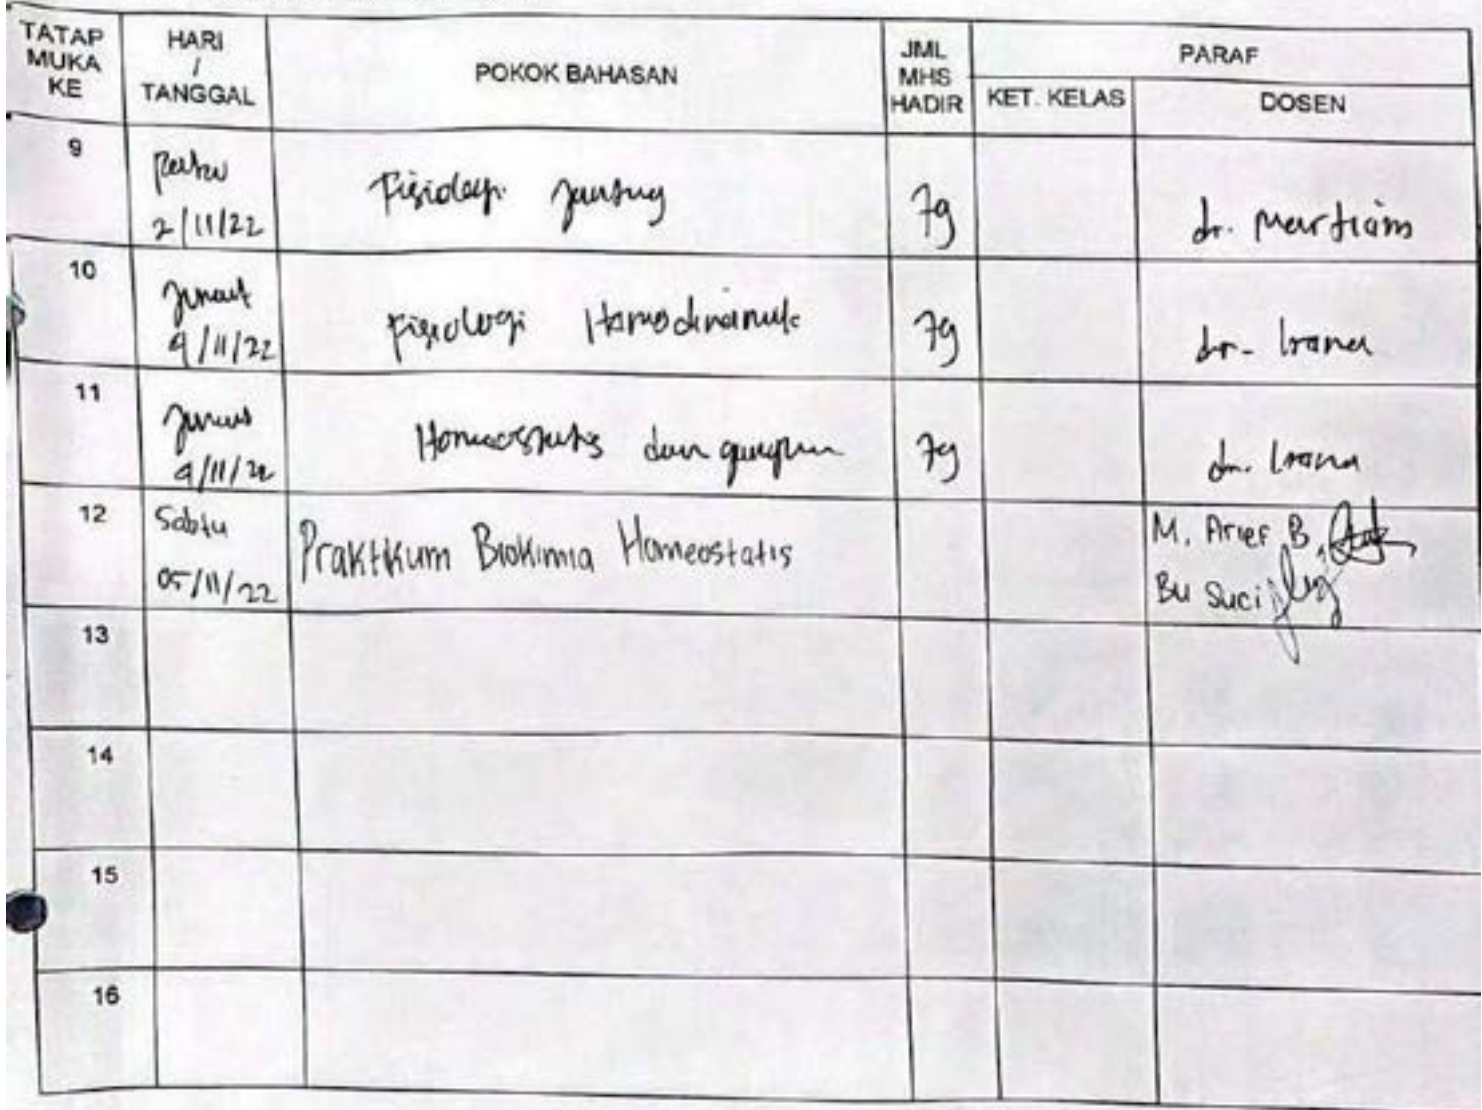 TATAP MUKA KE HARI / TANGGAL POKOK BAHASAN JML MHS HADIR PARAF
KET. KELAS DOSEN
9 2/11/22 Fisiologi Jantung 79 dr.
10 Jumat 4/11/22 Fisiologi Hemodinamik 79 dr. Irana
11 Jumat 4/11/22 Homeostatis dan 79 dr. Irana
12 Sabtu 05/11/22 Praktikum Biokimia Homeostatis M. Arief B.
Bu Suci
13
14
15
16